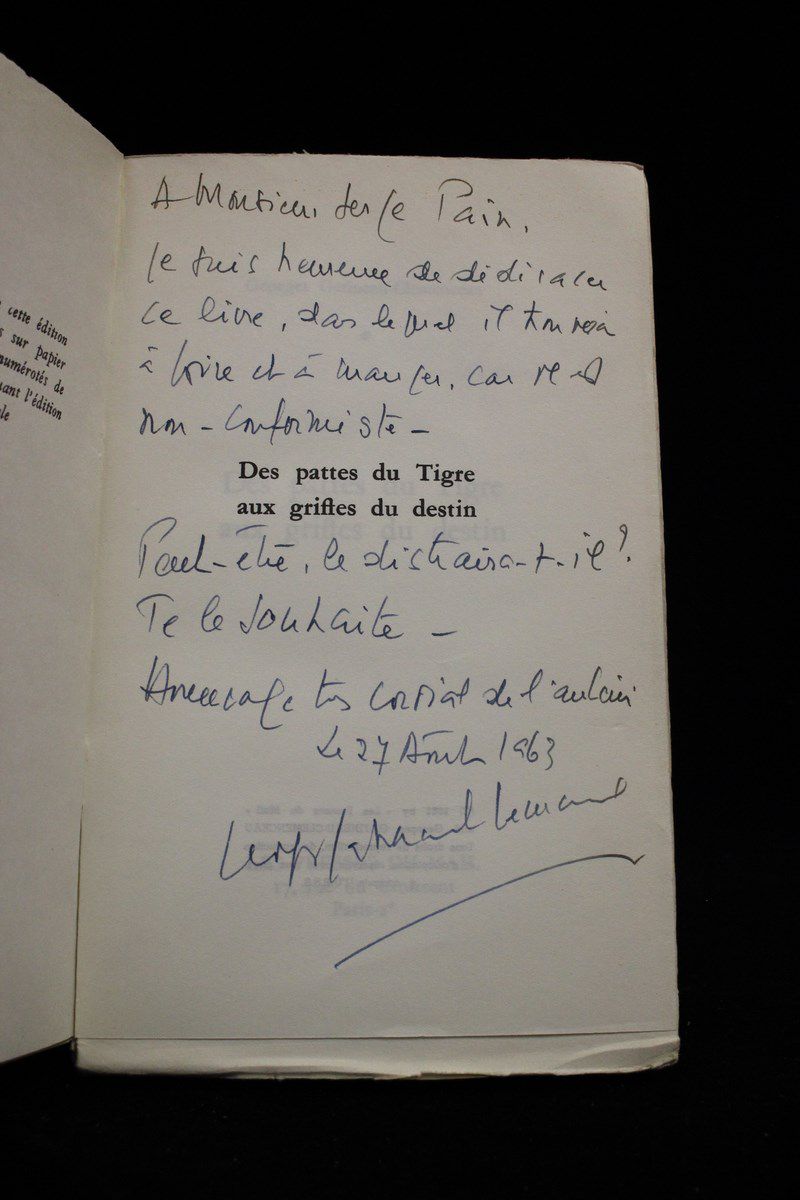 cette édition
s sur papier
numérotés de
uant l'édition
le
A Monsieur Serge Pain,
Je suis heureux de dédicacer
ce livre, dans lequel il trouvera
à boire et à manger, car il est
non-conformiste -
Des pattes du Tigre
aux griffes du destin
Peut-être, le distraira-t-il?
Je le souhaite -
Hommage très cordial de l'auteur
Le 27 Août 1963